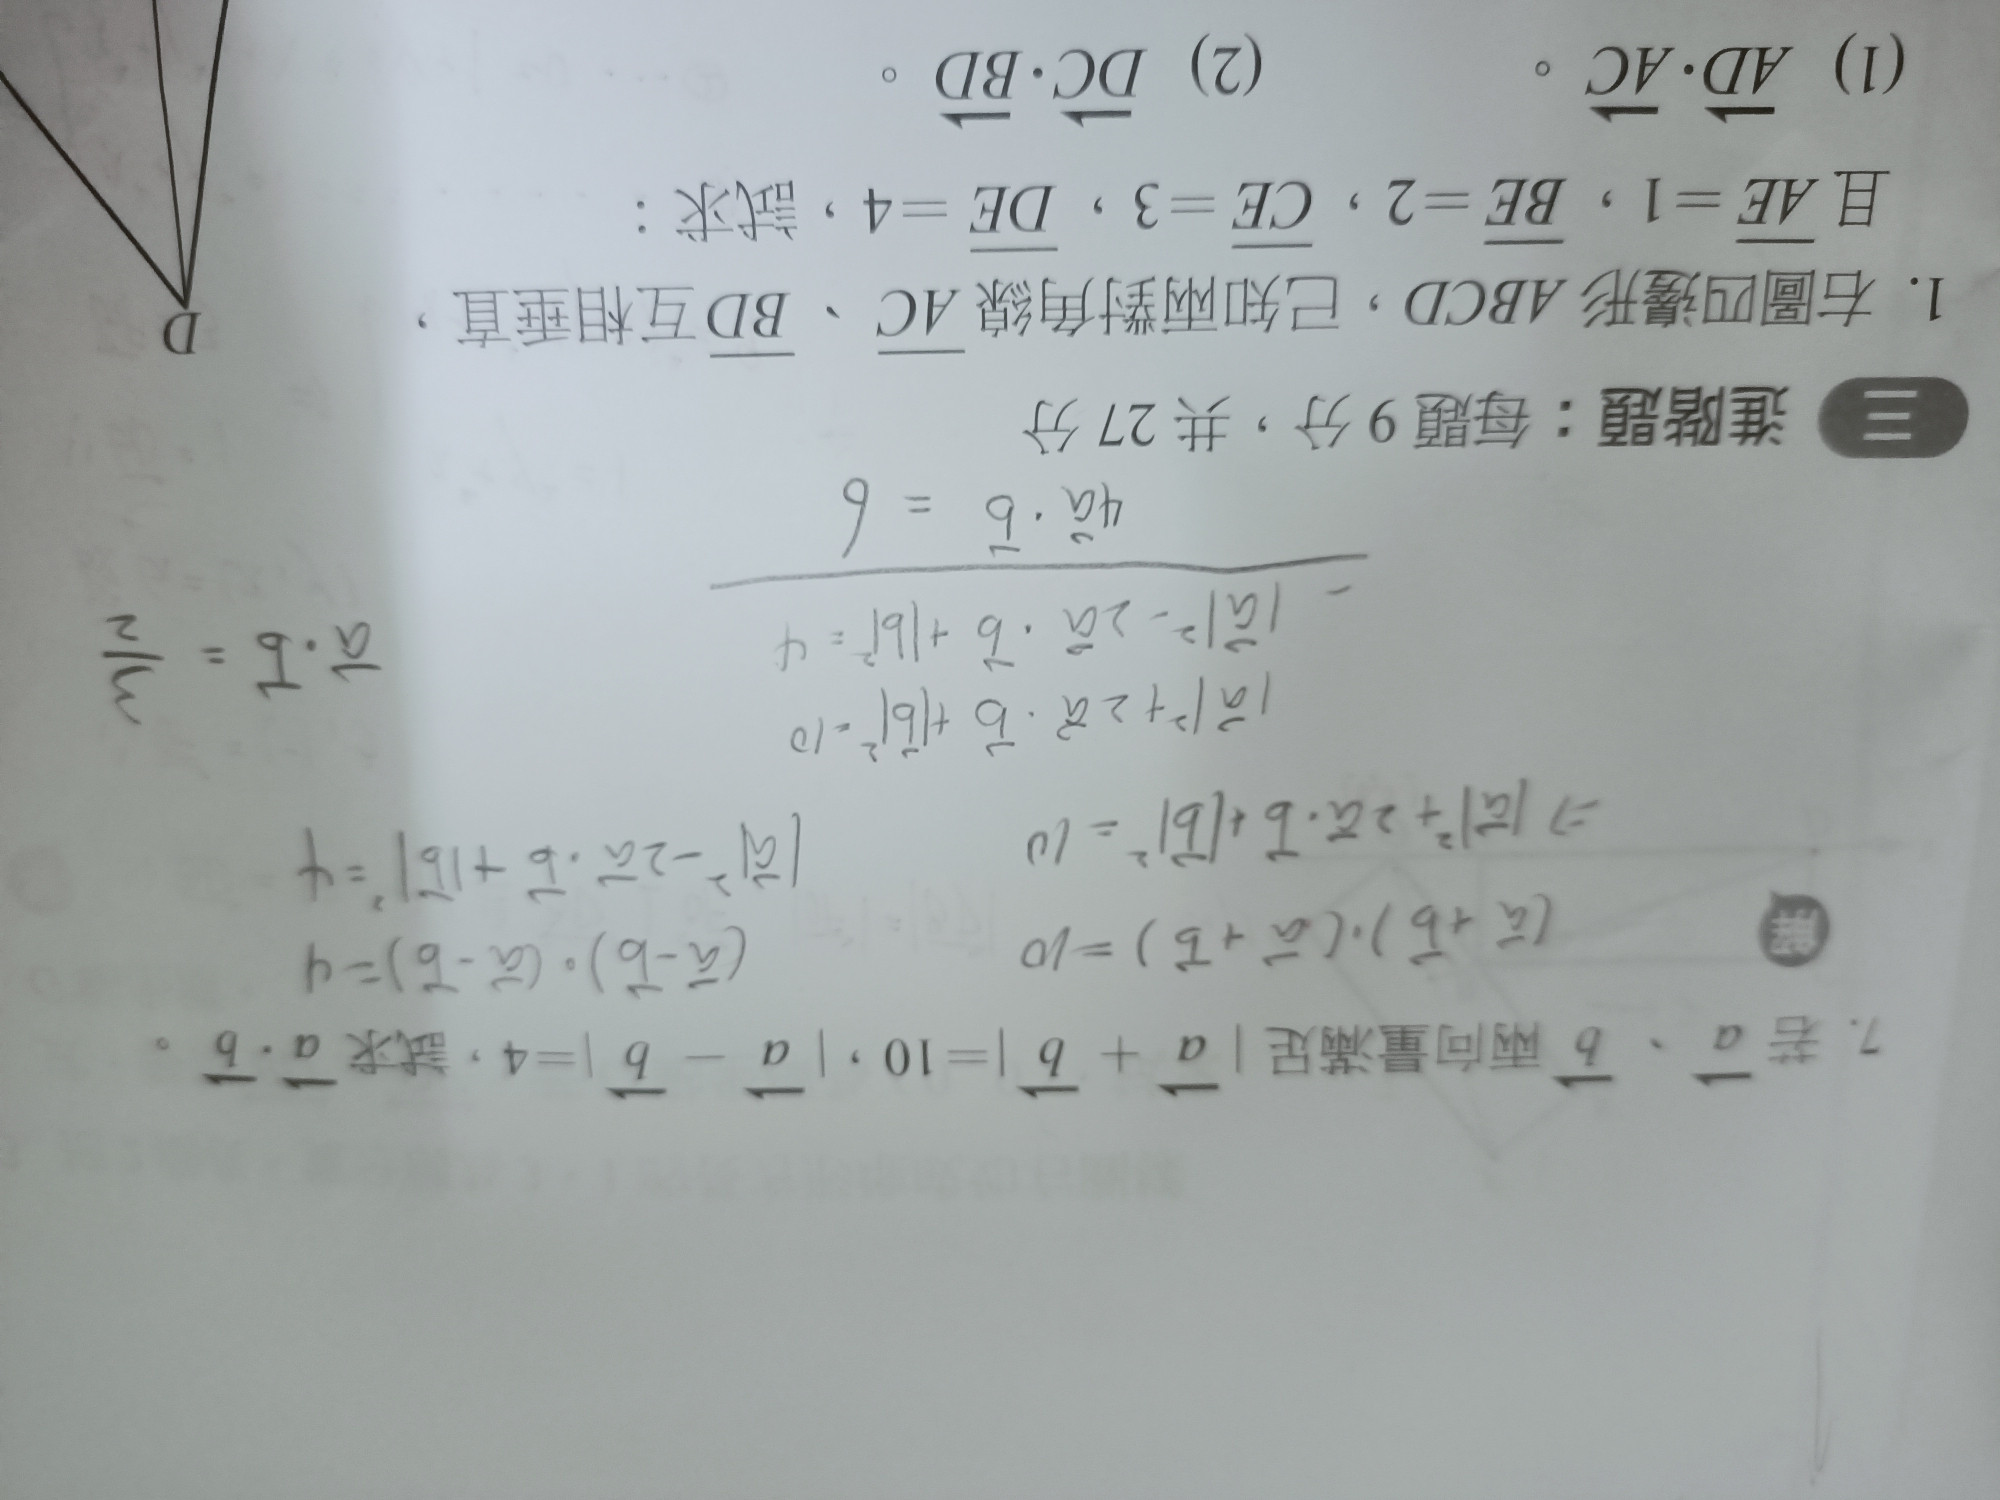 7. 若 a、b 兩向量滿足 | a + b |=10，| a − b |=4，試求 a·b。
解
(a+b)·(a+b)=10 (a-b)·(a-b)=4
⇒|a|²+2a·b+|b|²=10 |a|²-2a·b+|b|²=4
|a|²+2a·b+|b|²=10
- |a|²-2a·b+|b|²=4
4a·b = 6
a·b = 3/2
三 進階題：每題 9 分，共 27 分
1. 右圖四邊形 ABCD，已知兩對角線 AC、BD 互相垂直，
且 AE=1，BE=2，CE=3，DE=4，試求：
(1) AD·AC。 (2) DC·BD。
D